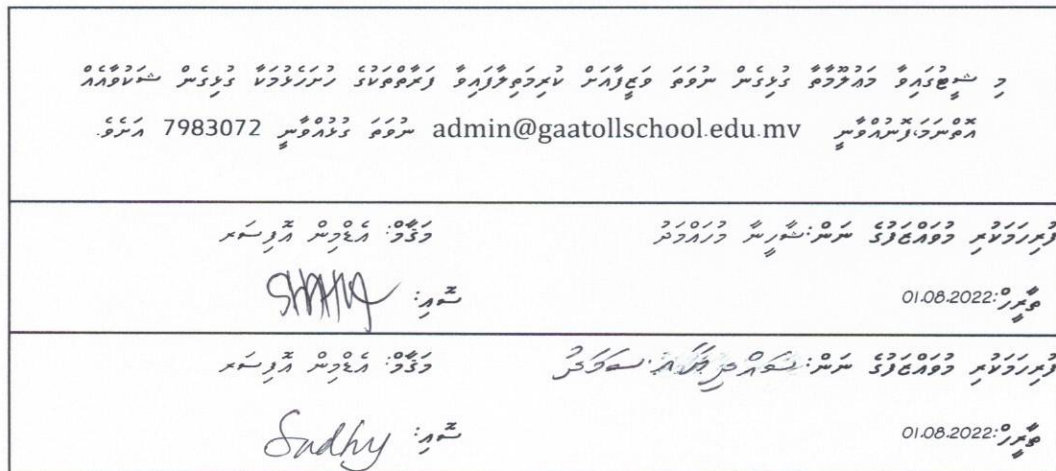 މި ޝީޓުގައިވާ މަޢުލޫމާތާ ގުޅިގެން ނުވަތަ ވަޒީފާއަށް ކުރިމަތިލާފައިވާ ފަރާތްތަކުގެ ހުށަހެޅުމަކާ ގުޅިގެން ޝަކުވާއެއް
އޮތްނަމަ،ފޮނުއްވާނީ admin@gaatollschool.edu.mv ނުވަތަ ގުޅުއްވާނީ 7983072 އަށެވެ.
ފުރިހަމަކުރި މުވައްޒަފުގެ ނަން:ޝާހީނާ މުހައްމަދު މަޤާމް: އެޑްމިން އޮފިސަރ
ތާރީޚް:01.08.2022 ސޮއި:
ފުރިހަމަކުރި މުވައްޒަފުގެ ނަން: ޞަމަދު މަޤާމް: އެޑްމިން އޮފިސަރ
ތާރީޚް:01.08.2022 ސޮއި: Sadhy